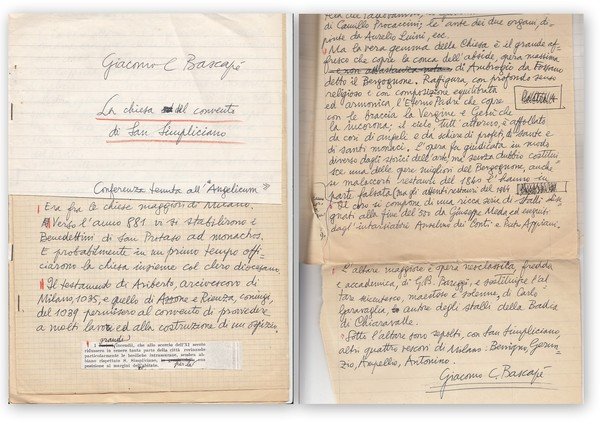 Giacomo C. Bascapè
La chiesa del convento
di San Simpliciano
Conferenza tenuta all'"Angelicum"
Era fra le chiese maggiori di Milano.
Verso l'anno 881 vi si stabilirono i
Benedettini di san Protaso ad monachos.
E probabilmente in un primo tempo offi-
ciarono la chiesa insieme col clero diocesano.
Il testamento di Ariberto, arcivescovo di
Milano, 1035, e quello di Azzone e Rienza, coniugi,
del 1039 permisero al convento di provvedere
a molti lavori ed alla costruzione di un ospizio.
grandi
I incendi, che allo scorcio dell'XI secolo
ridussero in cenere tanta parte della città rovinando
particolarmente le basiliche intramurane, sembra ab-
biano rispettato S. Simpliciano, per la
posizione ai margini dell'abitato.
di Camillo Procaccini; le ante dei due organi, di-
pinte da Aurelio Luini, ecc.
Ma la vera gemma della Chiesa è il grande af-
fresco che copre la conca dell'abside, opera massima
e non abbastanza nota di Ambrogio da Fossano
detto il Bergognone. Rafigura con profondo senso
religioso e con composizione equilibrata
ed armonica l'Eterno Padre che copre
con le braccia la Vergine e Gesù che
la incorona; il cielo tutt'attorno, è affollato
da cori di angeli e da schiere di profeti, di sante e
di santi monaci. L'opera fu giudicata in modo
diverso dagli storici dell'arte, ma senza dubbio costitui-
sce una delle opere migliori del Bergognone, anche
se malaccorti restauri del 1840 l'hanno in
parte falsata
Il coro si compone di una ricca serie di stalli di-
segnati alla fine del 500 da Giuseppe Meda ed eseguiti
dagl'intarsiatori Anselmo dei Conti e
L'altare maggiore è opera neoclassica, fredda
e accademica, di G.B. e sostituisce l'al-
tar secentesco, maestoso e solenne, di Carlo
Garavaglia, autore degli stalli della Badia
di Chiaravalle.
Sotto l'altare sono sepolti, con San Simpliciano
altri quattro vescovi di Milano: Benigno, Geron-
zio, Ampellio, Antonino.
Giacomo C. Bascapè